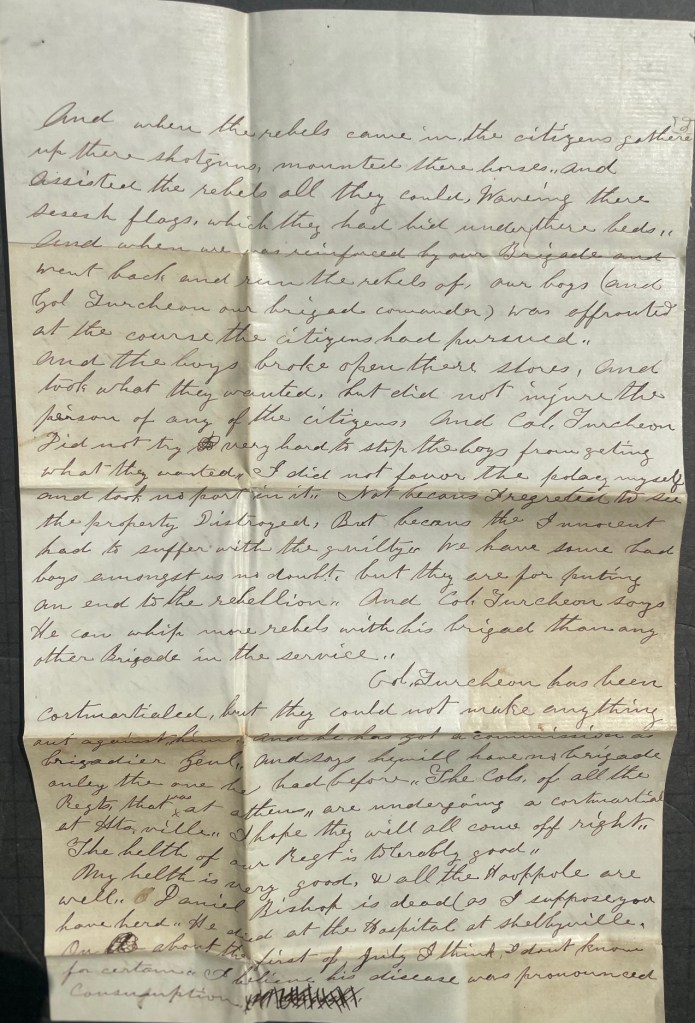 And when the rebels came in, the citizens gathere
up there shotguns, mounted there horses,, and
assisted the rebels all they could, Waveing there
sesesh flags, which they had hid under there beds,,
And when we was reinforced by our Brigade and
went back and run the rebels of, our boys (and
Col Turcheon our brigad comander) was affronted
at the course the citizens had pursued,,
and the boys broke open there stores, and
took what they wanted, but did not injure the
person of any of the citizens, and Col. Turcheon
Did not try very hard to stop the boys from geting
what they wanted,, I did not favor the polacy myself
and took no part in it,, Not becaus I regreted to see
the property Distroyed, But becaus the Innocent
had to suffer with the guilty,, We have some bad
boys amongst us no doubt, but they are for puting
an end to the rebellion,, And Col. Turcheon says
He can whip more rebels with his brigad than any
other Brigade in the service,,
Col. Turcheon has been
cortmartialed, but they could not make anything
out against him,, and he has got a commission as
brigadier Genl,, and says he will have no brigade
onley the one he had before,, The Cols, of all the
Regts, that was at athens,, are undergoing a cortmartial
at Hts,ville,, I hope they will all come off right,,
The helth of our Regt is tolerably good,,
My helth is very good, & all the Hooppole are
well,, Daniel Bishop is dead (as I suppose you
have herd,, He died at the Hospital at shelbyville,
On about the first of, July I think, I dont know
for certain,, I believe his disease was pronounced
Consumption,